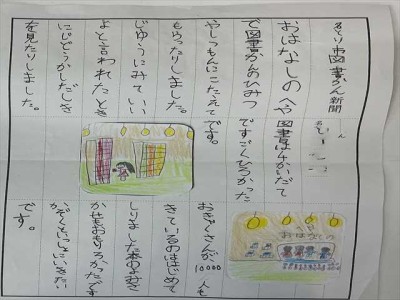 市図書かん新聞
おはなしのへや
で図書かんのひみつ
やしつもんにこたえて
もらったりしました。
じゆうにみていい
よと言われたとき
にじどうかしだしき
を見たりしました。
図書は4かいだて
ですごくひろかった
です。
おはなしの
おきゃくさんが10000人も
きているのははじめて
しりました本のよおき
かせもおもしろかったです
かぞくといっしょにいきたい
です。